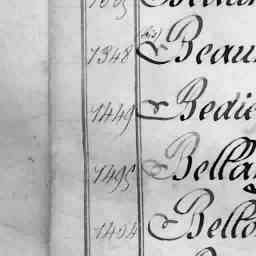 1348 (bis) Beau
1449 Bedie
1495 Bella
1404 Bello